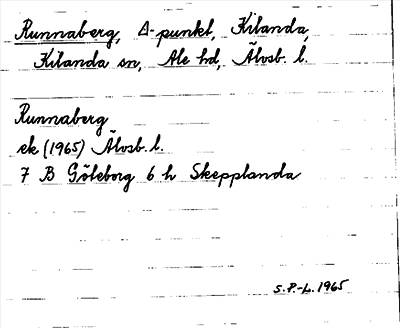 Runnaberg, Δ-punkt, Kilanda,
Kilanda sn, Ale hd, Älvsb. l.
Runnaberg
ek (1965) Älvsb. l.
7 B Göteborg 6 h Skepplanda
S.P.-L. 1965